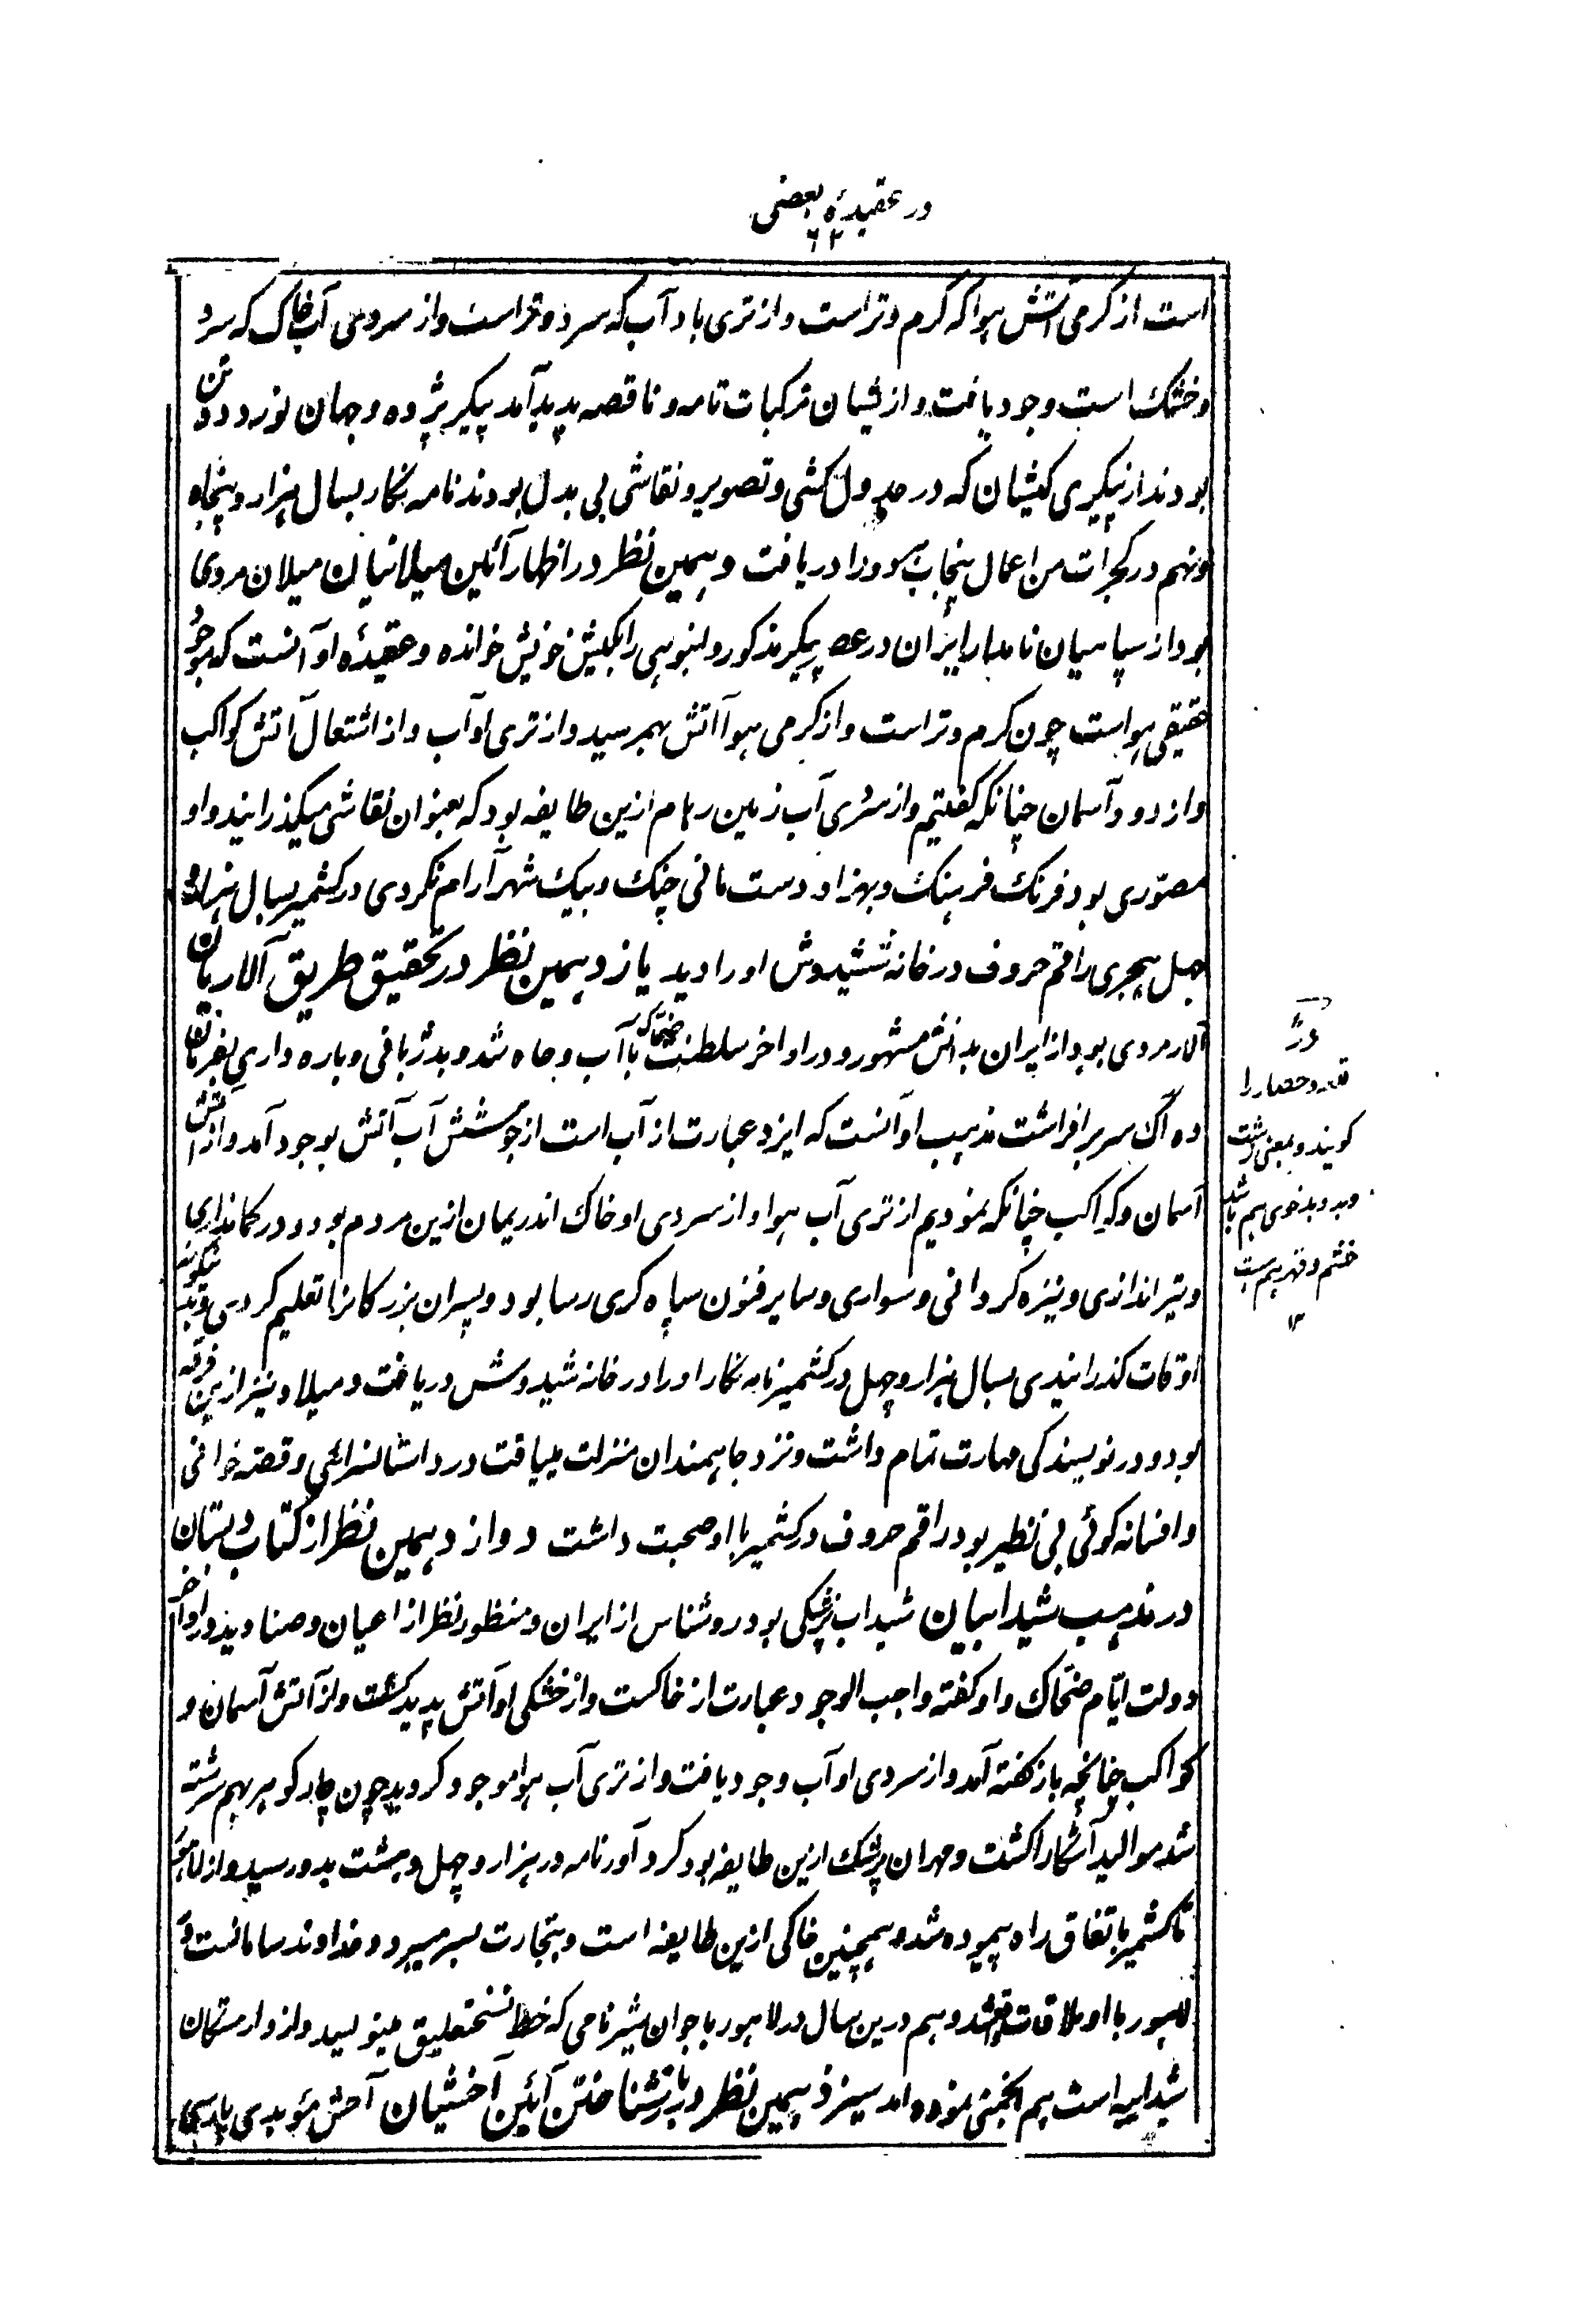 در عقیدهٔ بعضی
۶۲
است از کرمی آتش هوا که کرم و تراست و از تری باد آب که سرد و تراست و از سردی آب خاک که سرد
و خشک است وجود یافت و ازیشان ترکیبات تامه و ناقصه پدید آمد پیکر پژوه و جهان نورد دو تن
بودند از پیکری کیشیان که در جدول کشی و تصویر و نقاشی بی بدل بودند نامه نکار بسال هزار و پنجاه
و نهم در کجرات من اعمال پنجاب هر دو را دریافت دهمین نظر در اظهار آئین میلانیان میلان مردی
بود از سپاهیان نامدار ایران در عصر پیکر مذکور و انبوهی را بکیش خویش خوانده و عقیدهٔ او آنست که موجود
حقیقی هواست چون کرم و تراست و از کرمی هوا آتش بهم رسید و از تری او آب و از اشتعال آتش کواکب
و از دود آسمان چنانکه کفتیم و از سردی آب زمین رهام ازین طایفه بود که بعنوان نقاشی میکذرانید و او
مصوّری بود فرنک فرهنک و بهزاد دست مانی چنک و بیک شهر آرام نکردی در کشمیر بسال هزار و
چهل هجری راقم حروف در خانهٔ شیدوش او را دید یازدهمین نظر در تحقیق طریق آلاریان
آلار مردی بود از ایران بدانش مشهور و در اواخر سلطنت ضحاک با آب و جاه شد و بدژبانی و باره داری بفرمان
ده آک سر برافراشت مذهب او آنست که ایزد عبارت از آب است از جوشش آب آتش بوجود آمد و از آتش
آسمان و کواکب چنانکه نمودیم از تری آب هوا و از سردی او خاک اندریمان ازین مردم بود و در کمانداری
و تیراندازی و نیزه کردانی و سواری و سایر فنون سپاه کری رسا بود و پسران بزرکانرا تعلیم کردی و بدینکونه
اوقات کذرانیدی بسال هزار و چهل در کشمیر نامه نکار او را در خانهٔ شیدوش دریافت و میلاد نیز ازین فرقه
بود و در نویسندکی مهارت تمام داشت و نزد جاهمندان منزلت مییافت در داستانسرائی و قصّه خوانی
و افسانه کوئی بی نظیر بود راقم حروف در کشمیر با او صحبت داشت دوازدهمین نظر از کتاب دبستان
در مذهب شیدابیان شیداب پزشکی بود روشناس از ایران و منظور نظر از اعیان و صنادید در اواخر
دولت ایّام ضحّاک و او کفته واجب الوجود عبارت از خاکست و از خشکی او آتش پدید کشت و از آتش آسمان و
کواکب چنانچه باز کفته آمد و از سردی او آب وجود یافت و از تری آب هوا موجود کردید چون چار کوهر بهم سرشته
شد موالید آشکارا کشت و مهران پزشک ازین طایفه بود کرد آور نامه در هزار و چهل و هشت بدو رسید و از لاهور
تا کشمیر باتفاق راه پیموده شد و همچنین خاکی ازین طایفه است و بتجارت بسر میبرد و خداوند سامانست در
لاهور با او ملاقات واقع شد و هم درین سال در لاهور با جوان شیر نامی که خط نستعلیق مینویسد و از وارستکان
شیدابیه است هم انجمنی نموده اند سیزدهمین نظر در بازشناختن آئین آخشیان آخش موبدی پارسی
دژ
قلعه و حصار را
کویند و بمعنی زشت
و بد و بدخوی هم باشد
خشم و قهر هم است
۱۲